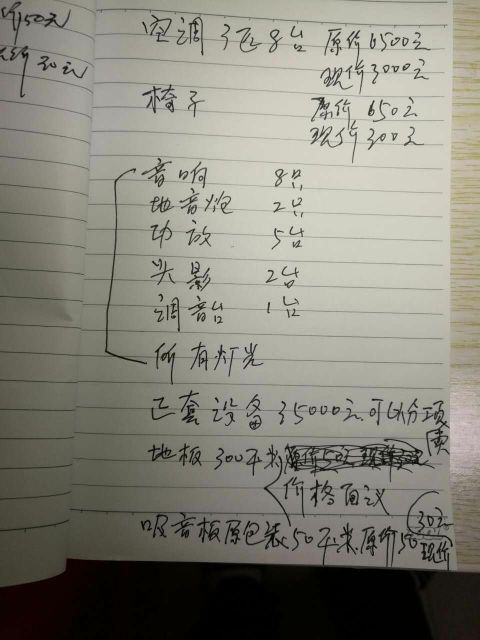 价50元
价30元
空調 3匹 8台 原价6500元
现价3000元
椅子 原价650元
现价300元
音响 8只
地音炮 2只
功放 5台
头影 2台
调音台 1台
所有灯光
套设备 35000元可以分项卖
地板 300平米
价格面议
吸音板原包装50平米原价50
30元
现价